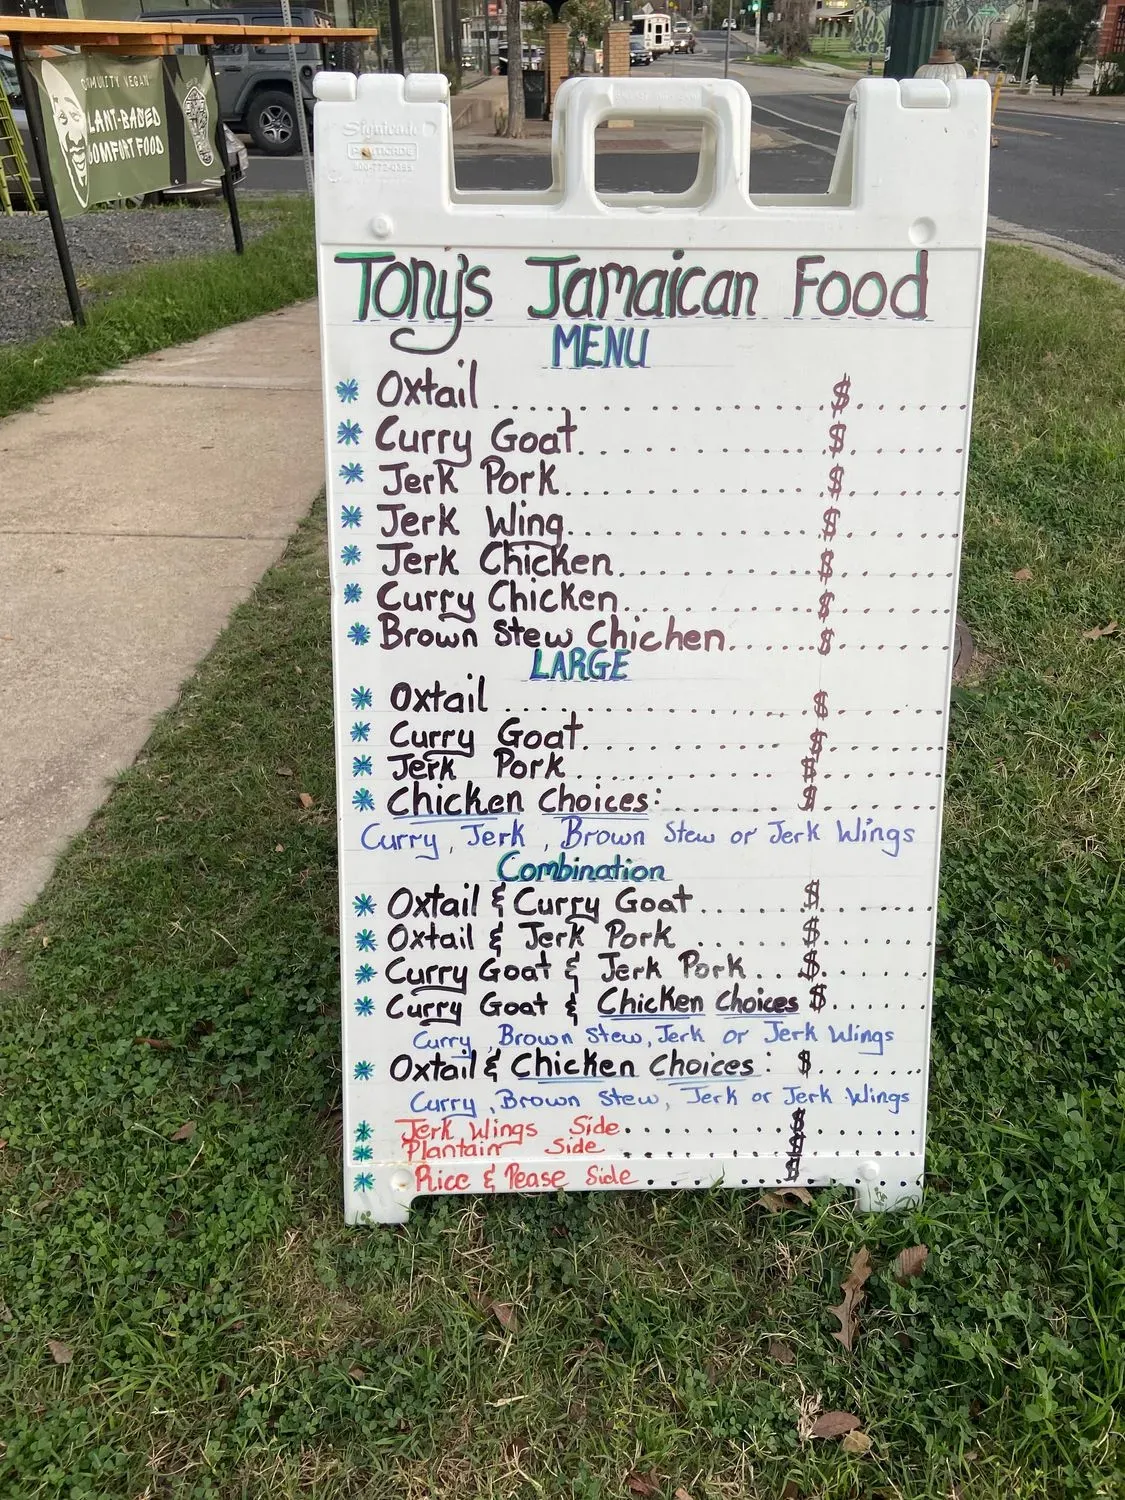 OMUNITY VEGAN
LANT-BASED
OMFORT FOOD
Signicade
Tony's Jamaican Food
MENU
* Oxtail ........................ $ ........
* Curry Goat ........................ $ ........
* Jerk Pork ........................ $ ........
* Jerk Wing ........................ $ ........
* Jerk Chicken ........................ $ ........
* Curry Chicken ........................ $ ........
* Brown Stew Chichen ........ $ ........
LARGE
* Oxtail ........................ $ ........
* Curry Goat ........................ $ ........
* Jerk Pork ........................ $ ........
* Chicken Choices: ............ $ ........
Curry, Jerk, Brown Stew or Jerk Wings
Combination
* Oxtail & Curry Goat ........ $ ........
* Oxtail & Jerk Pork ........ $ ........
* Curry Goat & Jerk Pork ... $ ........
* Curry Goat & Chicken Choices $ ......
Curry, Brown Stew, Jerk or Jerk Wings
* Oxtail & Chicken Choices : $ .......
Curry, Brown Stew, Jerk or Jerk Wings
* Jerk Wings Side ............ $ ........
* Plantain Side ............ $ ........
* Rice & Pease Side ............ $ ........